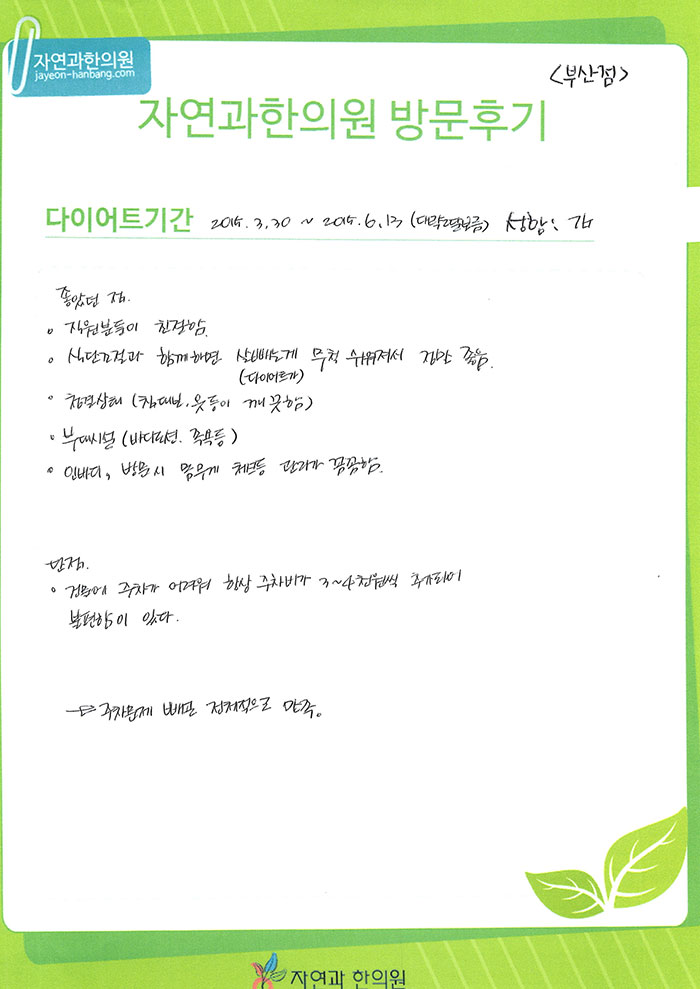 자연과한의원
jayeon-hanbang.com
<부산점>
자연과한의원 방문후기
다이어트기간 2015. 3. 30 ~ 2015. 6. 13 (대략 2달보름) 성함: 김
좋았던 점.
직원분들이 친절함.
식단조절과 함께하면 살빼는게 무척 쉬워져서 정말 좋음.
(다이어트가)
청결상태 (침대보, 옷등이 깨끗함)
부대시설 (바디로션. 족욕등)
인바디, 방문시 몸무게 체크등 관리가 꼼꼼함.
단점.
건물에 주차가 어려워 항상 주차비가 3~4천원씩 추가되어
불편함이 있다.
⇒ 주차문제 빼곤 전체적으로 만족.
자연과 한의원